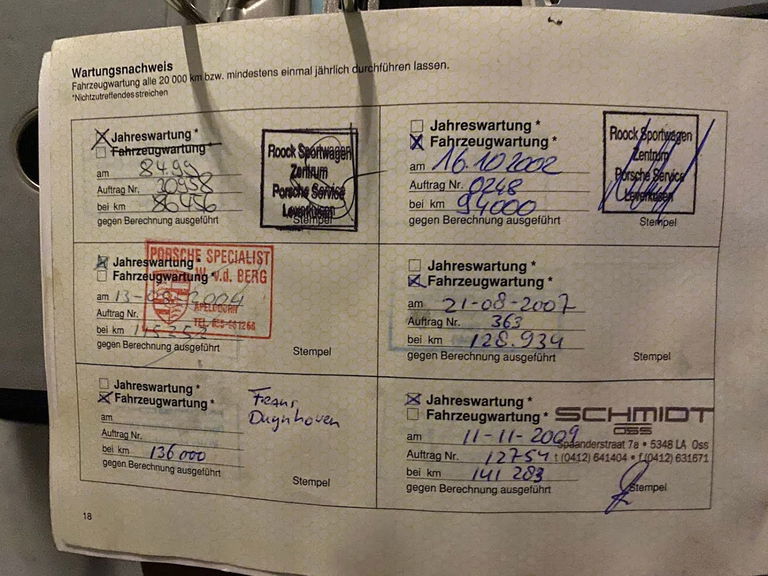 Wartungsnachweis
Fahrzeugwartung alle 20 000 km bzw. mindestens einmal jährlich durchführen lassen.
*Nichtzutreffendes streichen
Jahreswartung *
Fahrzeugwartung *
am 8 4.99
Auftrag Nr. 20958
bei km 86456
gegen Berechnung ausgeführt
Roock Sportwagen
Zentrum
Porsche Service
Leverkusen
Stempel
Jahreswartung *
Fahrzeugwartung *
am 16.10.2002
Auftrag Nr. 0248
bei km 94000
gegen Berechnung ausgeführt
Roock Sportwagen
Zentrum
Porsche Service
Leverkusen
Stempel
Jahreswartung *
Fahrzeugwartung *
am 13-08-2004
Auftrag Nr.
bei km
gegen Berechnung ausgeführt
PORSCHE SPECIALIST
v.d. BERG
APELDOORN
Stempel
Jahreswartung *
Fahrzeugwartung *
am 21-08-2007
Auftrag Nr. 363
bei km 128.934
gegen Berechnung ausgeführt
Stempel
Jahreswartung *
Fahrzeugwartung *
am
Auftrag Nr.
bei km 136000
gegen Berechnung ausgeführt
Frans
Duynhoven
Stempel
Jahreswartung *
Fahrzeugwartung *
am 11-11-2009
Auftrag Nr. 12754
bei km 141 283
gegen Berechnung ausgeführt
SCHMIDT
OSS
Spaanderstraat 7a • 5348 LA Oss
t (0412) 641404 • f (0412) 631671
Stempel
18